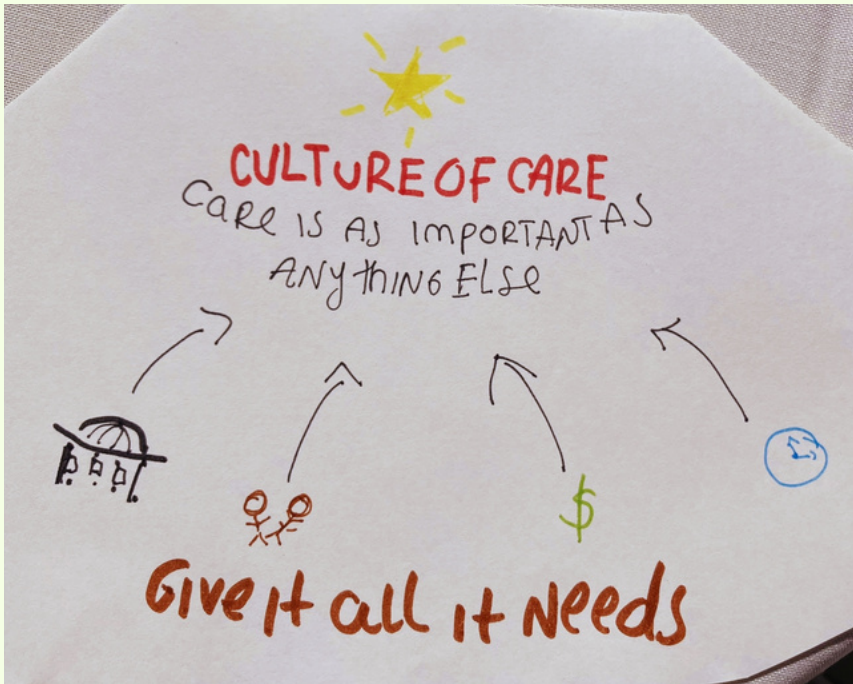 CULTURE OF CARE
CARe IS AS IMPORTANT AS
ANythING ELSe
$
GIVe It all It Needs